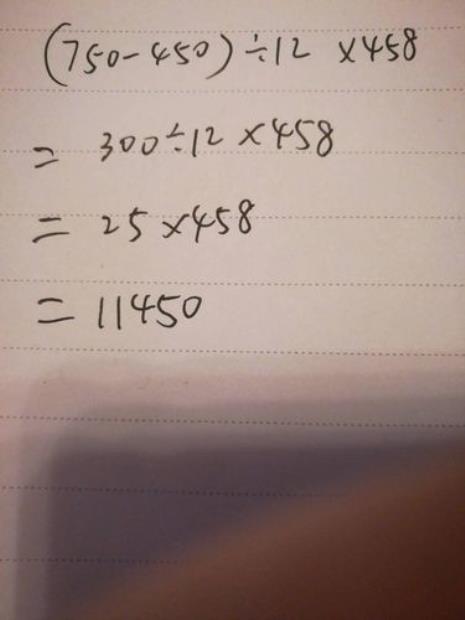 (750-450)÷12 ×458
= 300÷12×458
= 25×458
= 11450